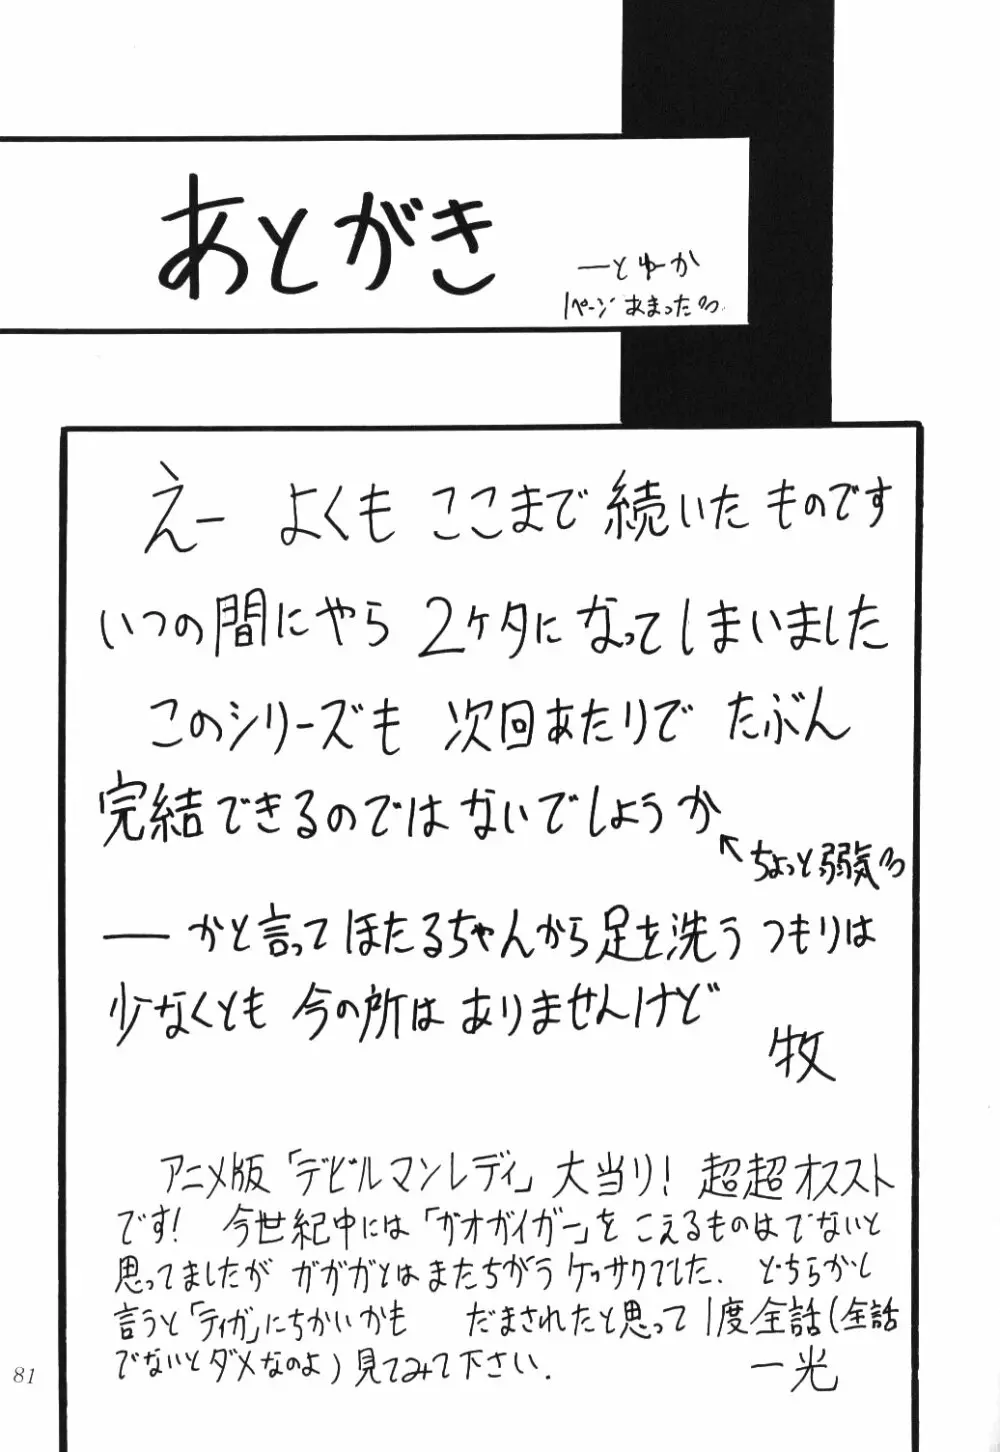 あとがき
ーとゆーか
1ページあまった
えー よくも ここまで 続いた ものです
いつの間にやら 2ケタに なってしまいました
このシリーズも 次回あたりで たぶん
完結できるのではないでしょうか
←ちょっと弱気
── かと言って ほたるちゃんから 足を洗う つもりは
少なくとも 今の所は ありませんけど
牧
アニメ版「デビルマンレディ」大当り! 超超オススト
です! 今世紀中には「ガオガイガー」を こえるものは でないと
思ってましたが ガガガとは またちがう ケッサクでした. どちらかと
言うと「ティガ」にちかいかも だまされたと思って1度全話(全話
でないとダメなのよ)見てみて下さい.
一光
81